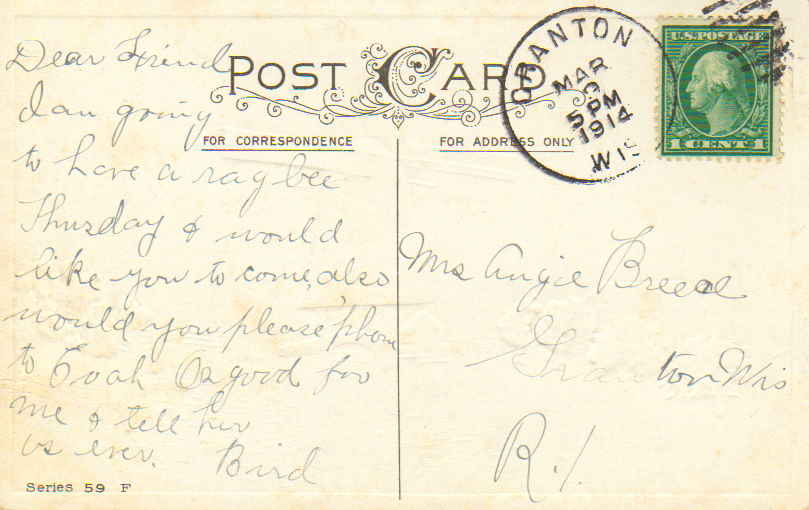 Dear Friend
POST CARD
I am going
FOR CORRESPONDENCE
FOR ADDRESS ONLY
to have a rag bee
Thursday & would
like you to come, also
would you please 'phone
to Osgood for
me & tell her
as ever. Bird
Series 59 F
GRANTON
MAR
5 PM
1914
WIS
U.S. POSTAGE
1 CENT 1
Mrs Angie Breed
Granton Wis
R. 1